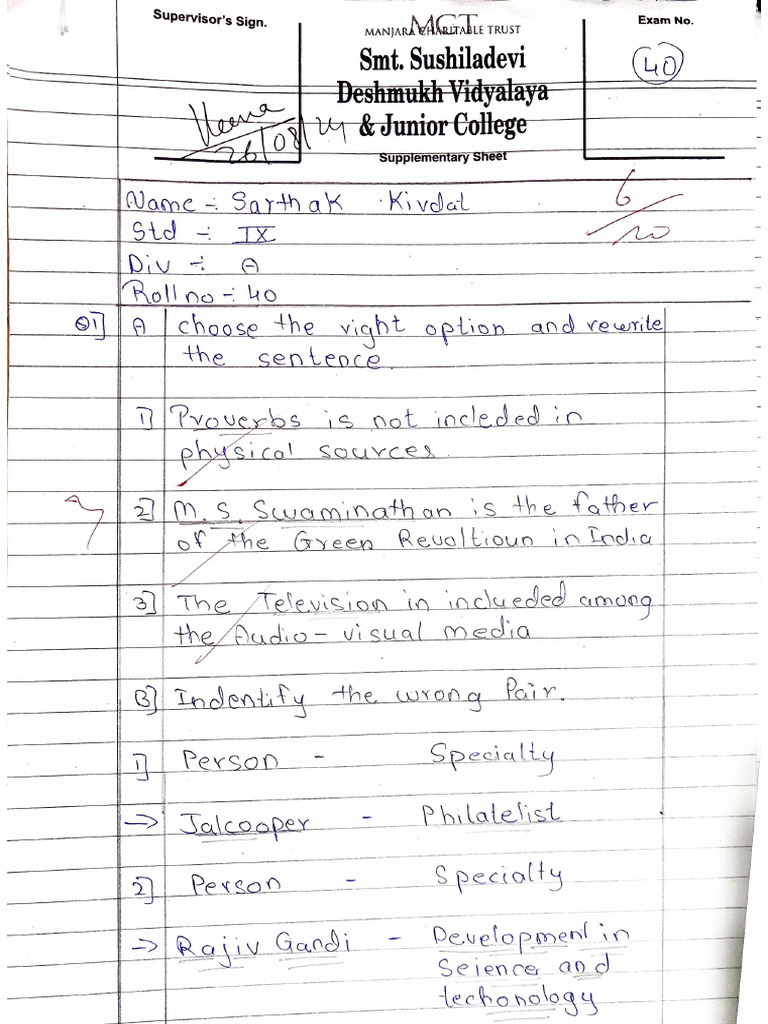 Supervisor's Sign.
MGT
MANJARA CHARITABLE TRUST
Exam No.
Smt. Sushiladevi
Deshmukh Vidyalaya
& Junior College
Supplementary Sheet
40
Heena
26/08/24
Name :- Sarthak Kivdal
Std :- IX
Div :- A
Roll no :- 40
6/20
Q1] A choose the right option and rewrite
the sentence.
1] Proverbs is not incleded in
physical sources.
2] M. S. Swaminathan is the father
of the Green Revoltioun in India
3] The Television in inclueded among
the Audio - visual media
B] Indentify the wrong Pair.
1] Person - Specialty
→ Jalcooper - Philatelist
2] Person - Specialty
→ Rajiv Gandi - Development in
Seience and
techonology